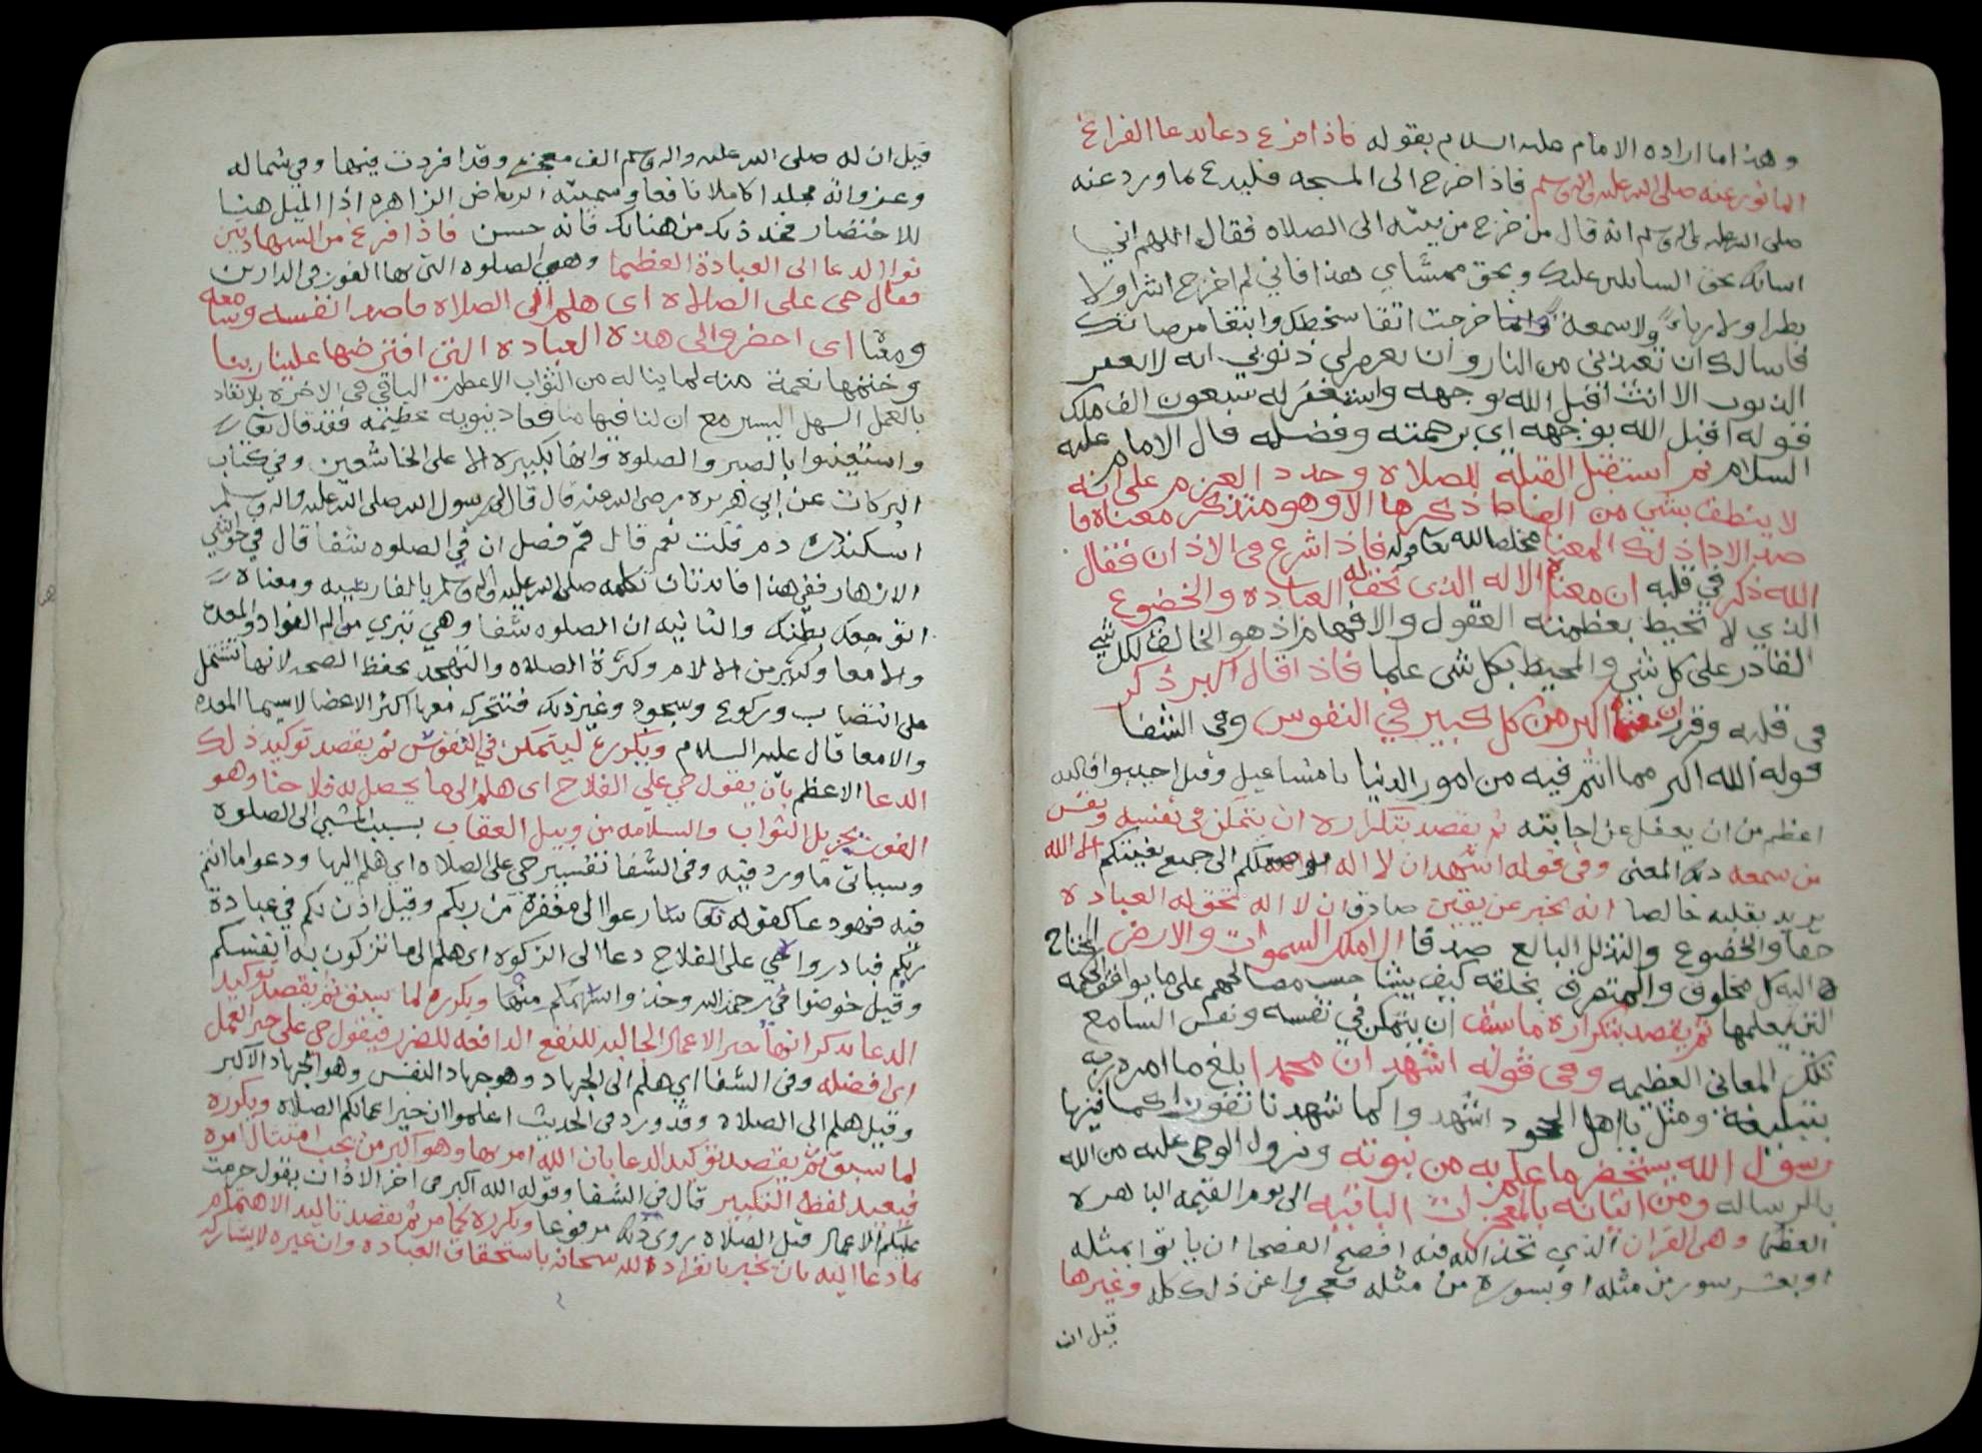 وهذا ما اراده الامام عليه السلام بقوله فاذا فرغ دعا بدعا الفراغ
الماثور عنه صلى الله عليه واله وسلم فاذا خرج الى المسجد فليدع بما ورد عنه
صلى الله عليه واله وسلم انه قال من خرج من بيته الى الصلاه فقال اللهم اني
اسالك بحق السايلين عليك وبحق ممشاي هذا فاني لم اخرج اشرا ولا
بطرا ولا رياء ولا سمعة وانما خرجت اتقا سخطك وابتغا مرضاتك
فاسالك ان تعيذني من النار وان تغفر لي ذنوبي انه لا يغفر
الذنوب الا انت اقبل الله بوجهه واستغفر له سبعون الف ملك
قوله اقبل الله بوجهه اي برحمته وفضله قال الامام عليه
السلام ثم استقبل القبلة للصلاه وجدد العزم على انه
لا ينطق بشي من الفاظ ذكرها الا وهو متذكر معناه
فاذا شرع في الاذان فقال
الله ذكر في قلبه ان معناه الاله الذي تحق له العباده والخضوع
الذي لا تحيط بعظمته العقول والافهام اذ هو الخالق لكل شي
القادر على كل شي والمحيط بكل شي علما فاذا قال اكبر ذكر
في قلبه وقرر ان معناه اكبر من كل كبير في النفوس وفي الشفا
قوله الله اكبر مما انتم فيه من امور الدنيا يا مشاغيل وقيل اجيبوا فالله
اعظم من ان يغفل عن اجابته ثم يقصد بتكراره ان يتمكن في نفسه ونفس
من سمعه ذلك المعنى وفي قوله اشهد ان لا اله الا الله
يريد بقلبه خالصا انه يخبر عن يقين صادق ان لا اله تحق له العباده
حقا والخضوع والتذلل البالغ صدقا الا ملك السموات والارض المحتاج
اليه كل مخلوق والمتصرف بخلقه كيف يشا حسب مصالحهم على ما يوافق الحكمه
التي يعلمها ثم يقصد بتكراره ما سبق ان يتمكن في نفسه ونفس السامع
تلك المعاني العظيمه وفي قوله اشهد ان محمدا بلغ ما امره ربه
بتبليغه ومثل يا اهل اشهدوا كما شهدنا
رسول الله يستحضر ما علم به من نبوته ونزول الوحي عليه من الله
بالرساله ومن اتيانه بالمعجزات الباقيه الى يوم القيمه الباهره
العظما وهي القران الذي تحدى الله فيه افصح الفصحا ان ياتوا بمثله
او بعشر سور من مثله او بسوره من مثله فعجزوا عن ذلك كله وغيرها
قيل ان
قيل ان له صلى الله عليه واله وسلم الف معجزه وقد افردت فيها وفي شمائله
وغزواته مجلدا كاملا نافعا وسميته الرياض الزاهره اذ الميل هنا
للاختصار فخذ ذلك من هنالك فانه حسن فاذا فرغ من الشهادتين
نوا الدعا الى العبادة العظيما وهي الصلوه التي بها الفوز في الدارين
فقال حي على الصلاه اي هلم الى الصلاه قاصدا نفسه وسامعه
ومعنا اي احضروا الى هذه العباده التي افترضها علينا ربنا
وختمها نعمة منه لما يناله من الثواب الاعظم الباقي في الاخره بلا نفاد
بالعمل السهل اليسير مع ان لنا فيها منافعا دنيويه عظيمه فقد قال تعالى
واستعينوا بالصبر والصلوة وانها لكبيره الا على الخاشعين وفي كتاب
البركات عن ابي هريره رضي الله عنه قال قال لي رسول الله صلى الله عليه واله وسلم
اسكنك درم قلت نعم قال قم فصل ان في الصلوه شفا قال في حواشي
الازهار ففي هذا فائدتان تكلمه صلى الله عليه واله وسلم بالفارسيه ومعناه
اتوجعك بطنك والثانيه ان الصلوه شفا وهي تبري من الم الفواد والمعده
والامعا وكثير من الالام وكثرة الصلاه والتهجد بحفظ الصحه لانها تشتمل
على انتصاب وركوع وسجود وغير ذلك فتتحرك معها اكثر الاعضا لاسيما المعده
والامعا قال عليه السلام ويكرره ليتمكن في النفوس ثم يقصد توكيد ذلك
الدعا الاعظم بان يقول حي على الفلاح اي هلم الى ما يحصل به فلاحنا وهو
الفوز بجزيل الثواب والسلامه من وبيل العقاب بسبب المشي الى الصلوة
وسياتي ما ورد فيه وفي الشفا تفسير حي على الصلاه اي هلم اليها ودعوا ما انتم
فيه فهو دعا كقوله تعالى سارعوا الى مغفرة من ربكم وقيل اذن لكم في عبادة
ربكم فبادروا حي على الفلاح دعا الى الزكوه اي هلم الى ما تزكون به انفسكم
وقيل خوضوا في رحمة الله وخذوا سهمكم منها ويكرره لما سبق ثم يقصد توكيد
الدعا بذكر انها خير الاعمال الجالبه للنفع الدافعه للضرر فيقول حي على خير العمل
اي افضله وفي الشفا اي هلم الى الجهاد وهو جهاد النفس وهو الجهاد الاكبر
وقيل هلم الى الصلاه وقد ورد في الحديث اعلموا ان خير اعمالكم الصلاه ويكرره
لما سبق ثم يقصد توكيد الدعا بان الله امر بها وهو اكبر من يجب امتثال امره
فيعيد لفظ التكبير قال في الشفا وقوله الله اكبر في اخر الاذان يقول حرمت
عليكم الاعمال قبل الصلاه روي ذلك مرفوعا ويكرره لما مر ثم يقصد تاكيد الاهتمام
بما دعا اليه بان يخبر بانفراد الله سبحانه باستحقاق العباده وان غيره لا يشاركه